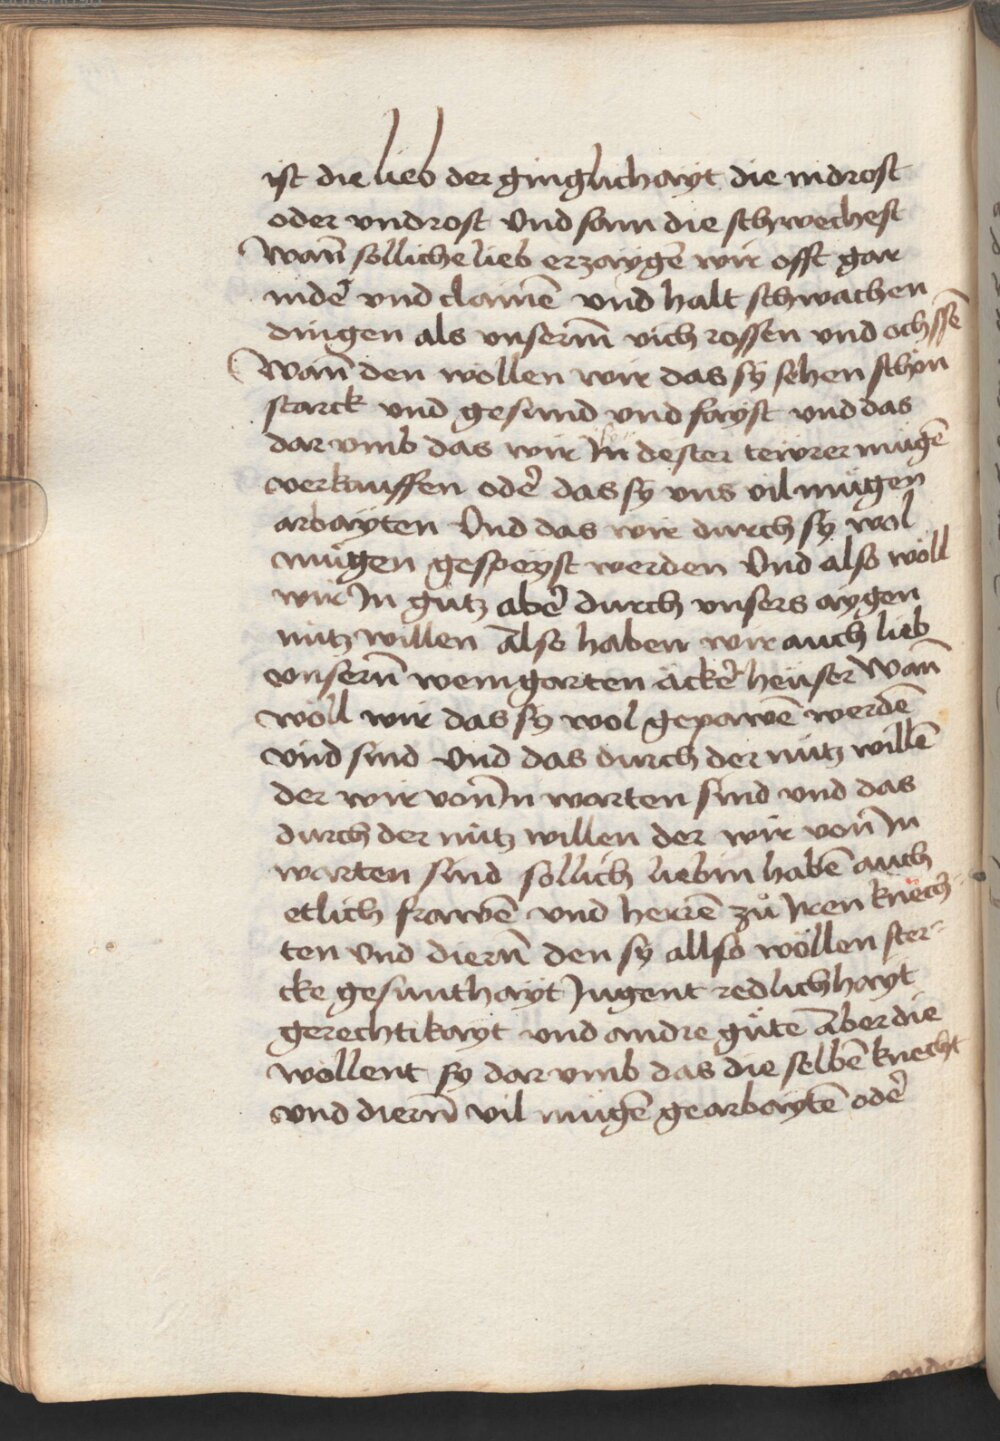 ist die lieb der ginglichayt die nidrost
oder vndrost Vnd sam die schwechest
Wañ solliche lieb erzaygē wir offt gar
nide᷑ vnd clainē vnd halt schwachen
dingen als vnserm̄ vich rossen vnd ochssē
Wañ den wöllen wir das sÿ sehen schön
starck vnd gesund vnd fayst vnd das
dar vmb das wir In dester tewrer mügē
verkauffen ode᷑ das sÿ vns vil mügen
arbayten Vnd das wir durch sÿ wol
mügen gespeyst werden Vnd also wöll
wir In gutz abe᷑ durch vnsers aygen
nutz willen Also haben wir auch lieb
vnsern̄ weingarten äcke᷑ heüser Wañ
wöll wir das sÿ wol gepawē werdē
vnd sind Vnd das durch der nutz willē
der wir von In warten sind vnd das
durch der nutz willen der wir von In
warten sind söllich lieb in habē auch
etlich frawē vnd herrē zů Iren knech
ten Vnd diern̄ den sÿ allso wöllen ster
cke gesunthayt Jugent redlichhayt
gerechtikayt vnd andre güte Aber die
wöllent sÿ dar vmb das die selbē knecht
vnd diern̄ vil mügē gearbaytē ode᷑